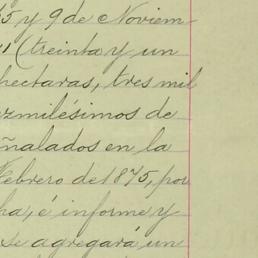 65 y 9 de Noviem
31 (treinta y un
hectaras, tres mil
ezmilésimos de
ñalados en la
Febrero de 1875, por
ha, é informe y
se agregará un